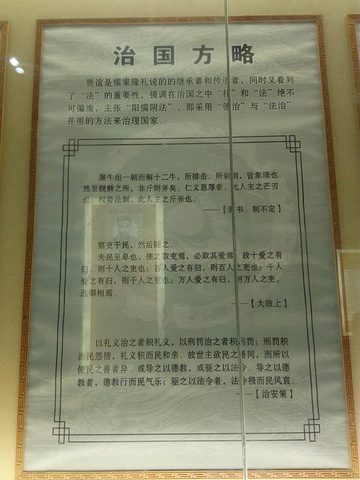 治国方略
贾谊是儒家隆礼说的的继承者和传道者，同时又看到
了“法”的重要性，强调在治国之中“礼”和“法”绝不
可偏废，主张“阳儒阴法”，即采用“德治”与“法治”
并用的方法来治理国家
屠牛坦一朝而解十二牛，所排击，所剥割，皆象理也。
然至髋髀之所，非斤则斧矣。仁义恩厚者，此人主之芒刃
也；权势法制，此人主之斤斧也。
——【新书．制不定】
察吏于民，然后随之。
夫民至卑也，使之取吏焉，必取其爱焉。故十爱之有
归，则十人之吏也；百人爱之有归，则百人之吏也；千人
爱之有归，则千人之吏也；万人爱之有归，则万人之吏，
选卿相焉。
——【大政上】
以礼义治之者积礼义，以刑罚治之者积刑罚；刑罚积
而民怨倍，礼义积而民和亲。故世主欲民之善同，而所以
使民之善者异。或导之以德教，或驱之以法令。导之以德
教者，德教行而民气乐；驱之以法令者，法令极而民风哀。
——【治安策】